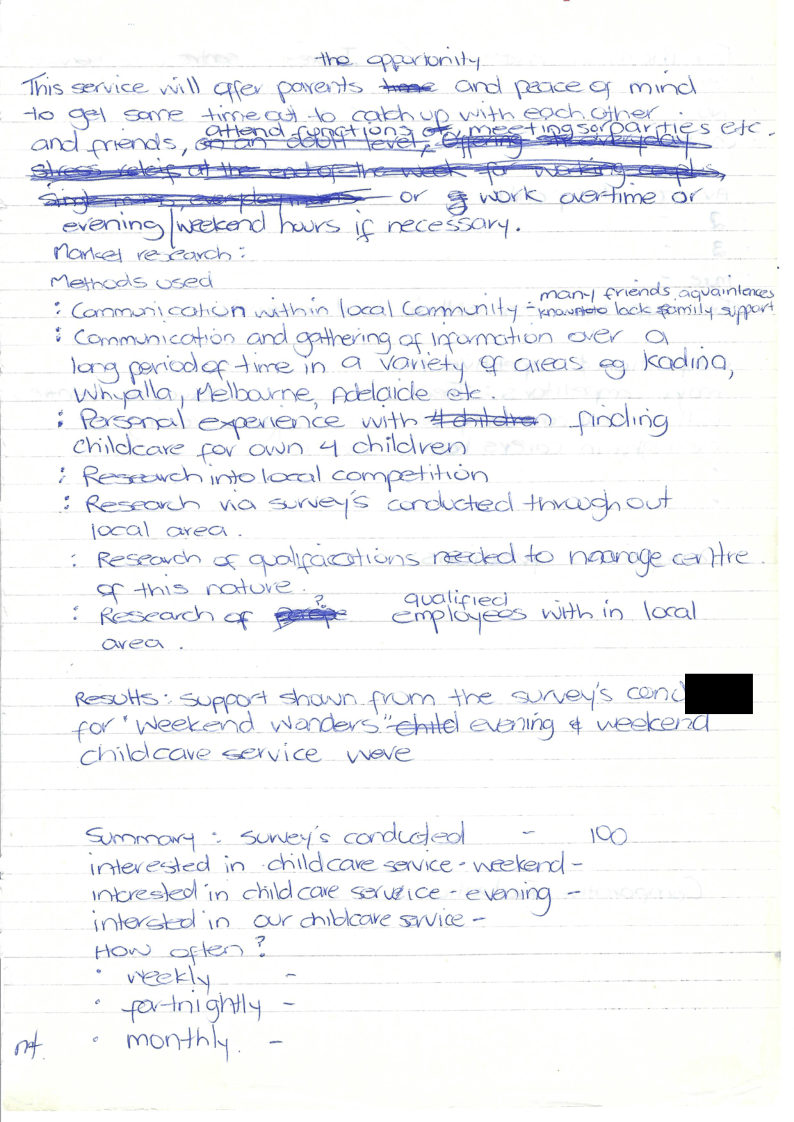 the opportunity
This service will offer parents time and peace of mind
to get some time out to catch up with each other
attend functions or meetings or parties etc.
and friends, on an adult level, offering the everyday
stress releif at the end of the week for working couples,
or work overtime or
evening/weekend hours if necessary.
Market research:
Methods used
many friends, aquaintences
: Communication within local Community - known to lack family support
: Communication and gathering of information over a
long period of time in a variety of areas eg Kadina,
Whyalla, Melbourne, Adelaide etc.
: Personal experience with 4 children finding
childcare for own 4 children
: Research into local competition
: Research via survey's conducted throughout
local area.
: Research of qualifacations needed to manage centre
of this nature.
? qualified
: Research of employees with in local
area.
Results: support shown from the survey's cond
for "Weekend Wanders" child evening & weekend
childcare service were
Summary: survey's conducted - 100
interested in childcare service - weekend -
intrested in childcare service - evening -
intersted in our childcare service -
How often?
• weekly -
• fortnightly -
• monthly. -